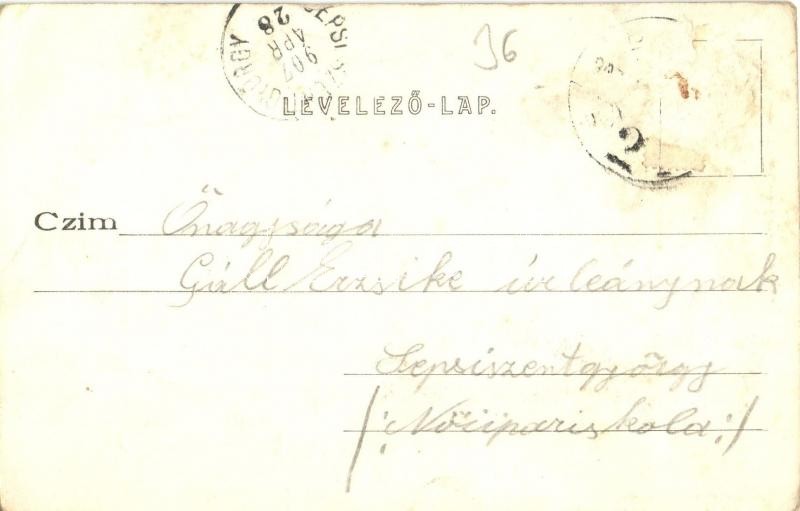 SEPSI SZENTGYÖRGY
907
APR
28
36
LEVELEZŐ-LAP.
Czim Őnagysága
Gáll Erzsike úrleánynak
Sepsiszentgyőrgy
/: Nőiipariskola :/